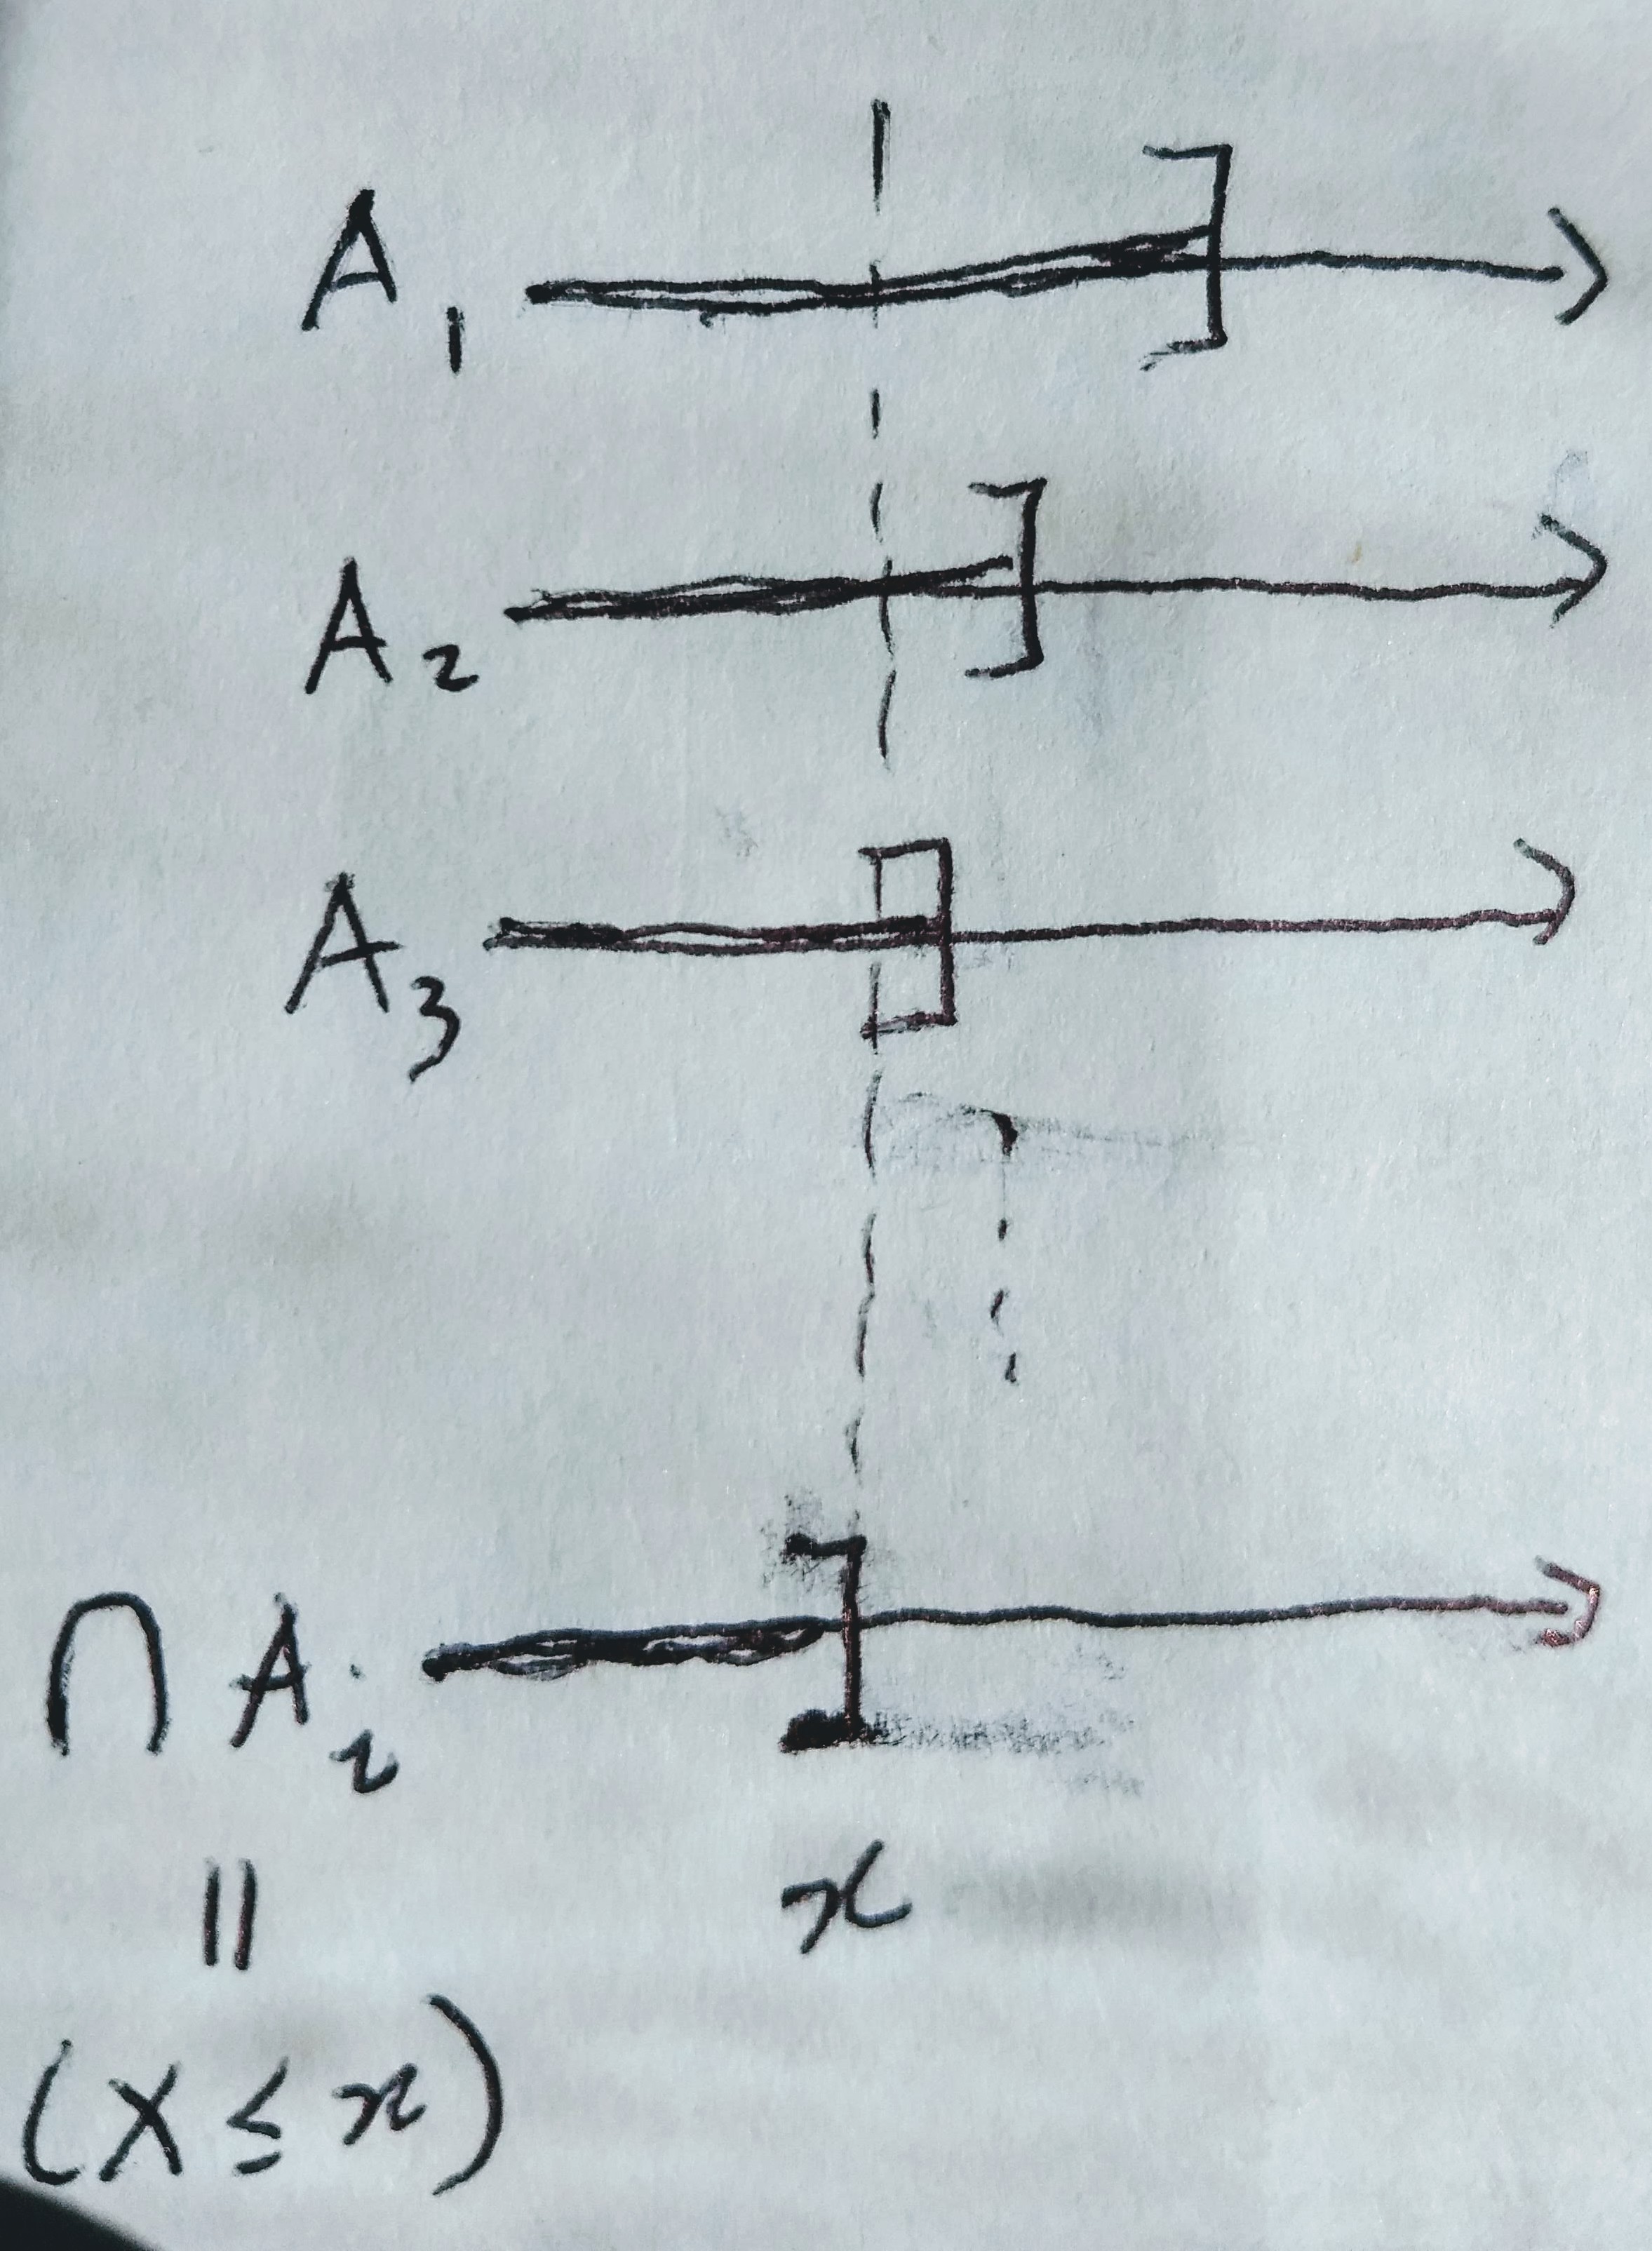 A₁
A₂
A₃
∩ Aᵢ
||
x
(X ≤ x)